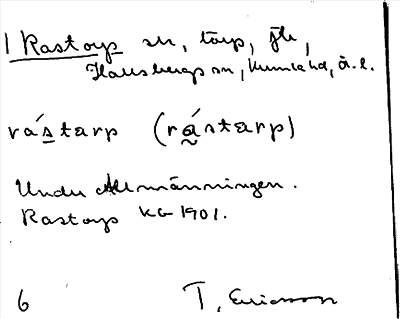 1 Rastorp sn, torp, fk,
Hallsbergs sn, Kumla hd, Ö. l.
rástarp (rá̰starp)
Under Allmänningen.
Rastorp KG 1901.
6 T. Ericsson